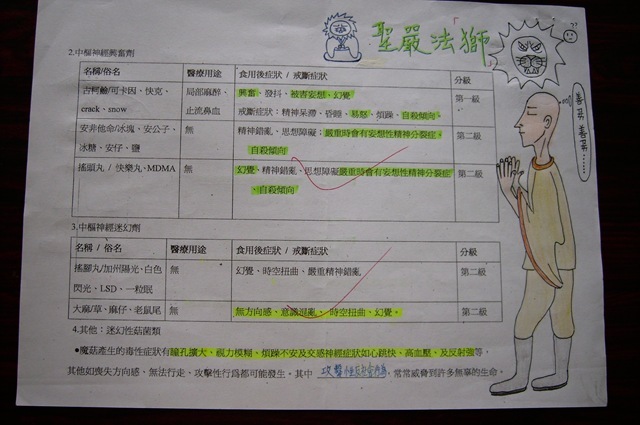 聖嚴法獅
??
善哉 善哉……
2.中樞神經興奮劑
名稱/俗名 醫療用途 食用後症狀 / 戒斷症狀 分級
古柯鹼/可卡因、快克、 局部麻醉、 興奮、發抖、被害妄想、幻覺 第一級
crack、snow 止流鼻血 戒斷症狀：精神呆滯、昏睡、易怒、煩躁、自殺傾向。
安非他命/冰塊、安公子、 無 精神錯亂、思想障礙；嚴重時會有妄想性精神分裂症。 第二級
冰糖、安仔、鹽 自殺傾向
搖頭丸 / 快樂丸、MDMA 無 幻覺、精神錯亂、思想障礙嚴重時會有妄想性精神分裂症 第二級
、自殺傾向
3.中樞神經迷幻劑
名稱 / 俗名 醫療用途 食用後症狀 / 戒斷症狀 分級
搖腳丸/加州陽光、白色 無 幻覺、時空扭曲、嚴重精神錯亂 第二級
閃光、LSD、一粒眠
大麻/草、麻仔、老鼠尾 無 無方向感、意識混亂、時空扭曲、幻覺。 第二級
4.其他：迷幻性菇菌類
●魔菇產生的毒性症狀有瞳孔擴大、視力模糊、煩躁不安及交感神經症狀如心跳快、高血壓、及反射強等，
其他如喪失方向感、無法行走、攻擊性行為都可能發生。其中 攻擊性 ，常常威脅到許多無辜的生命。